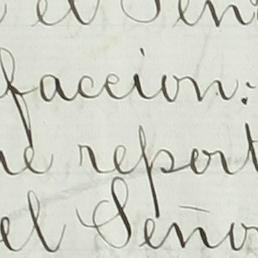 el Señ
faccion:
ue report
el Seño